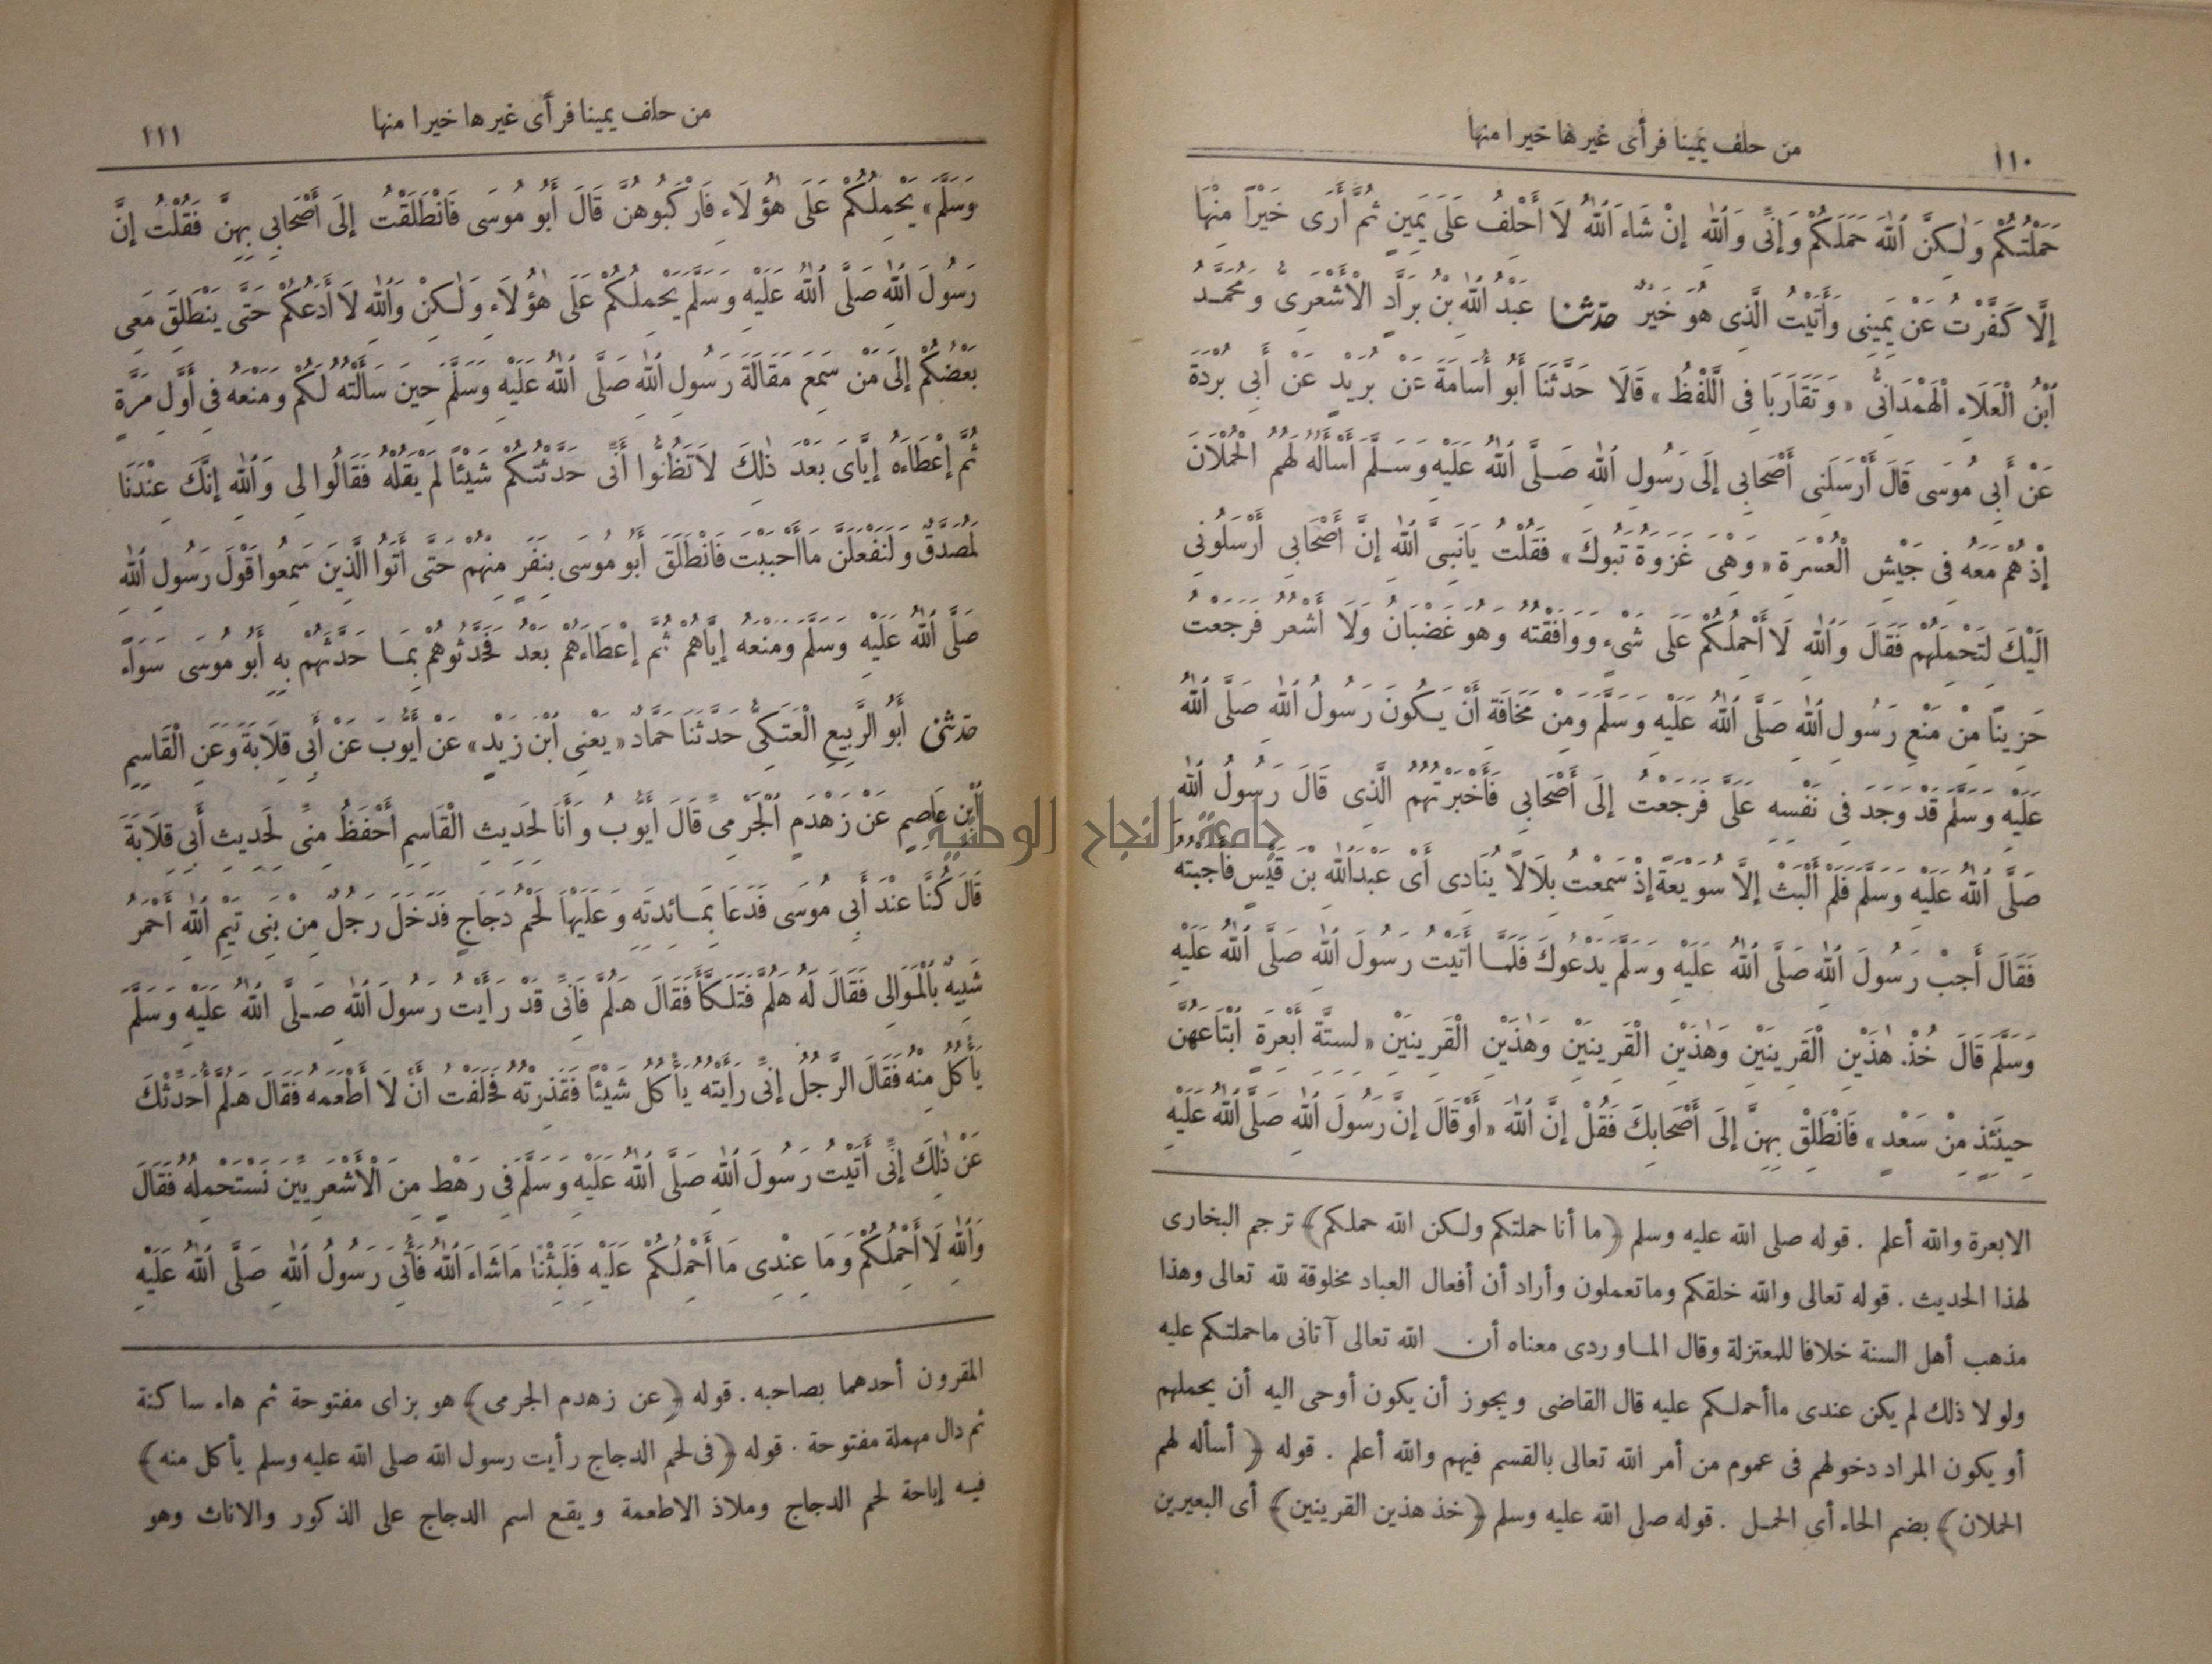 ١١٠
من حلف يمينا فرأى غيرها خيرا منها
حَمَلْتُكُمْ وَلٰكِنَّ اللهَ حَمَلَكُمْ وَإِنِّى وَاللهِ إِنْ شَاءَ اللهُ لَا أَحْلِفُ عَلَى يَمِينٍ ثُمَّ أَرَى خَيْرًا مِنْهَا
إِلَّا كَفَّرْتُ عَنْ يَمِينِى وَأَتَيْتُ الَّذِى هُوَ خَيْرٌ حدثنا عَبْدُ اللهِ بْنُ بَرَّادٍ الْأَشْعَرِىُّ وَمُحَمَّدُ
ابْنُ الْعَلَاءِ الْهَمْدَانِىُّ «وَتَقَارَبَا فِى اللَّفْظِ» قَالَا حَدَّثَنَا أَبُو أُسَامَةَ عَنْ بُرَيْدٍ عَنْ أَبِى بُرْدَةَ
عَنْ أَبِى مُوسَى قَالَ أَرْسَلَنِى أَصْحَابِى إِلَى رَسُولِ اللهِ صَلَّى اللهُ عَلَيْهِ وَسَلَّمَ أَسْأَلُهُ لَهُمُ الْحُمْلَانَ
إِذْ هُمْ مَعَهُ فِى جَيْشِ الْعُسْرَةِ «وَهِىَ غَزْوَةُ تَبُوكَ» فَقُلْتُ يَانَبِىَّ اللهِ إِنَّ أَصْحَابِى أَرْسَلُونِى
إِلَيْكَ لِتَحْمِلَهُمْ فَقَالَ وَاللهِ لَا أَحْمِلُكُمْ عَلَى شَىْءٍ وَوَافَقْتُهُ وَهُوَ غَضْبَانُ وَلَا أَشْعُرُ فَرَجَعْتُ
حَزِينًا مِنْ مَنْعِ رَسُولِ اللهِ صَلَّى اللهُ عَلَيْهِ وَسَلَّمَ وَمِنْ مَخَافَةِ أَنْ يَكُونَ رَسُولُ اللهِ صَلَّى اللهُ
عَلَيْهِ وَسَلَّمَ قَدْ وَجَدَ فِى نَفْسِهِ عَلَىَّ فَرَجَعْتُ إِلَى أَصْحَابِى فَأَخْبَرْتُهُمُ الَّذِى قَالَ رَسُولُ اللهِ
صَلَّى اللهُ عَلَيْهِ وَسَلَّمَ فَلَمْ أَلْبَثْ إِلَّا سُوَيْعَةً إِذْ سَمِعْتُ بِلَالًا يُنَادِى أَىْ عَبْدَاللهِ بْنَ قَيْسٍ فَأَجَبْتُهُ
فَقَالَ أَجِبْ رَسُولَ اللهِ صَلَّى اللهُ عَلَيْهِ وَسَلَّمَ يَدْعُوكَ فَلَمَّا أَتَيْتُ رَسُولَ اللهِ صَلَّى اللهُ عَلَيْهِ
وَسَلَّمَ قَالَ خُذْ هٰذَيْنِ الْقَرِينَيْنِ وَهٰذَيْنِ الْقَرِينَيْنِ وَهٰذَيْنِ الْقَرِينَيْنِ «لِسِتَّةِ أَبْعِرَةٍ ابْتَاعَهُنَّ
حِينَئِذٍ مِنْ سَعْدٍ» فَانْطَلِقْ بِهِنَّ إِلَى أَصْحَابِكَ فَقُلْ إِنَّ اللهَ «أَوْ قَالَ إِنَّ رَسُولَ اللهِ صَلَّى اللهُ عَلَيْهِ
الابعرة والله أعلم . قوله صلى الله عليه وسلم ﴿ما أنا حملتكم ولكن الله حملكم﴾ ترجم البخارى
لهذا الحديث . قوله تعالى والله خلقكم وماتعملون وأراد أن أفعال العباد مخلوقة لله تعالى وهذا
مذهب أهل السنة خلافا للمعتزلة وقال الماوردى معناه أن الله تعالى آتانى ماحملتكم عليه
ولولا ذلك لم يكن عندى ماأحملكم عليه قال القاضى ويجوز أن يكون أوحى اليه أن يحملهم
أو يكون المراد دخولهم فى عموم من أمر الله تعالى بالقسم فيهم والله أعلم . قوله ﴿أسأله لهم
الحملان﴾ بضم الحاء أى الحمل . قوله صلى الله عليه وسلم ﴿خذ هذين القرينين﴾ أى البعيرين
من حلف يمينا فرأى غيرها خيرا منها
١١١
وَسَلَّمَ» يَحْمِلُكُمْ عَلَى هٰؤُلَاءِ فَارْكَبُوهُنَّ قَالَ أَبُو مُوسَى فَانْطَلَقْتُ إِلَى أَصْحَابِى بِهِنَّ فَقُلْتُ إِنَّ
رَسُولَ اللهِ صَلَّى اللهُ عَلَيْهِ وَسَلَّمَ يَحْمِلُكُمْ عَلَى هٰؤُلَاءِ وَلٰكِنْ وَاللهِ لَا أَدَعُكُمْ حَتَّى يَنْطَلِقَ مَعِى
بَعْضُكُمْ إِلَى مَنْ سَمِعَ مَقَالَةَ رَسُولِ اللهِ صَلَّى اللهُ عَلَيْهِ وَسَلَّمَ حِينَ سَأَلْتُهُ لَكُمْ وَمَنْعَهُ فِى أَوَّلِ مَرَّةٍ
ثُمَّ إِعْطَاءَهُ إِيَّاىَ بَعْدَ ذٰلِكَ لَا تَظُنُّوا أَنِّى حَدَّثْتُكُمْ شَيْئًا لَمْ يَقُلْهُ فَقَالُوا لِى وَاللهِ إِنَّكَ عِنْدَنَا
لَمُصَدَّقٌ وَلَنَفْعَلَنَّ مَاأَحْبَبْتَ فَانْطَلَقَ أَبُو مُوسَى بِنَفَرٍ مِنْهُمْ حَتَّى أَتَوُا الَّذِينَ سَمِعُوا قَوْلَ رَسُولِ اللهِ
صَلَّى اللهُ عَلَيْهِ وَسَلَّمَ وَمَنْعَهُ إِيَّاهُمْ ثُمَّ إِعْطَاءَهُمْ بَعْدُ فَحَدَّثُوهُمْ بِمَا حَدَّثَهُمْ بِهِ أَبُو مُوسَى سَوَاءً
حدثنى أَبُو الرَّبِيعِ الْعَتَكِىُّ حَدَّثَنَا حَمَّادٌ «يَعْنِى ابْنَ زَيْدٍ» عَنْ أَيُّوبَ عَنْ أَبِى قِلَابَةَ وَعَنِ الْقَاسِمِ
ابْنِ عَاصِمٍ عَنْ زَهْدَمٍ الْجَرْمِىِّ قَالَ أَيُّوبُ وَأَنَا لِحَدِيثِ الْقَاسِمِ أَحْفَظُ مِنِّى لِحَدِيثِ أَبِى قِلَابَةَ
قَالَ كُنَّا عِنْدَ أَبِى مُوسَى فَدَعَا بِمَائِدَتِهِ وَعَلَيْهَا لَحْمُ دَجَاجٍ فَدَخَلَ رَجُلٌ مِنْ بَنِى تَيْمِ اللهِ أَحْمَرُ
شَبِيهٌ بِالْمَوَالِى فَقَالَ لَهُ هَلُمَّ فَتَلَكَّأَ فَقَالَ هَلُمَّ فَإِنِّى قَدْ رَأَيْتُ رَسُولَ اللهِ صَلَّى اللهُ عَلَيْهِ وَسَلَّمَ
يَأْكُلُ مِنْهُ فَقَالَ الرَّجُلُ إِنِّى رَأَيْتُهُ يَأْكُلُ شَيْئًا فَقَذِرْتُهُ فَحَلَفْتُ أَنْ لَا أَطْعَمَهُ فَقَالَ هَلُمَّ أُحَدِّثْكَ
عَنْ ذٰلِكَ إِنِّى أَتَيْتُ رَسُولَ اللهِ صَلَّى اللهُ عَلَيْهِ وَسَلَّمَ فِى رَهْطٍ مِنَ الْأَشْعَرِيِّينَ نَسْتَحْمِلُهُ فَقَالَ
وَاللهِ لَا أَحْمِلُكُمْ وَمَا عِنْدِى مَا أَحْمِلُكُمْ عَلَيْهِ فَلَبِثْنَا مَاشَاءَ اللهُ فَأُتِىَ رَسُولُ اللهِ صَلَّى اللهُ عَلَيْهِ
المقرون أحدهما بصاحبه . قوله ﴿عن زهدم الجرمى﴾ هو بزاى مفتوحة ثم هاء ساكنة
ثم دال مهملة مفتوحة . قوله ﴿فى لحم الدجاج رأيت رسول الله صلى الله عليه وسلم يأكل منه﴾
فيه إباحة لحم الدجاج وملاذ الاطعمة ويقع اسم الدجاج على الذكور والاناث وهو
جامعة النجاح الوطنية